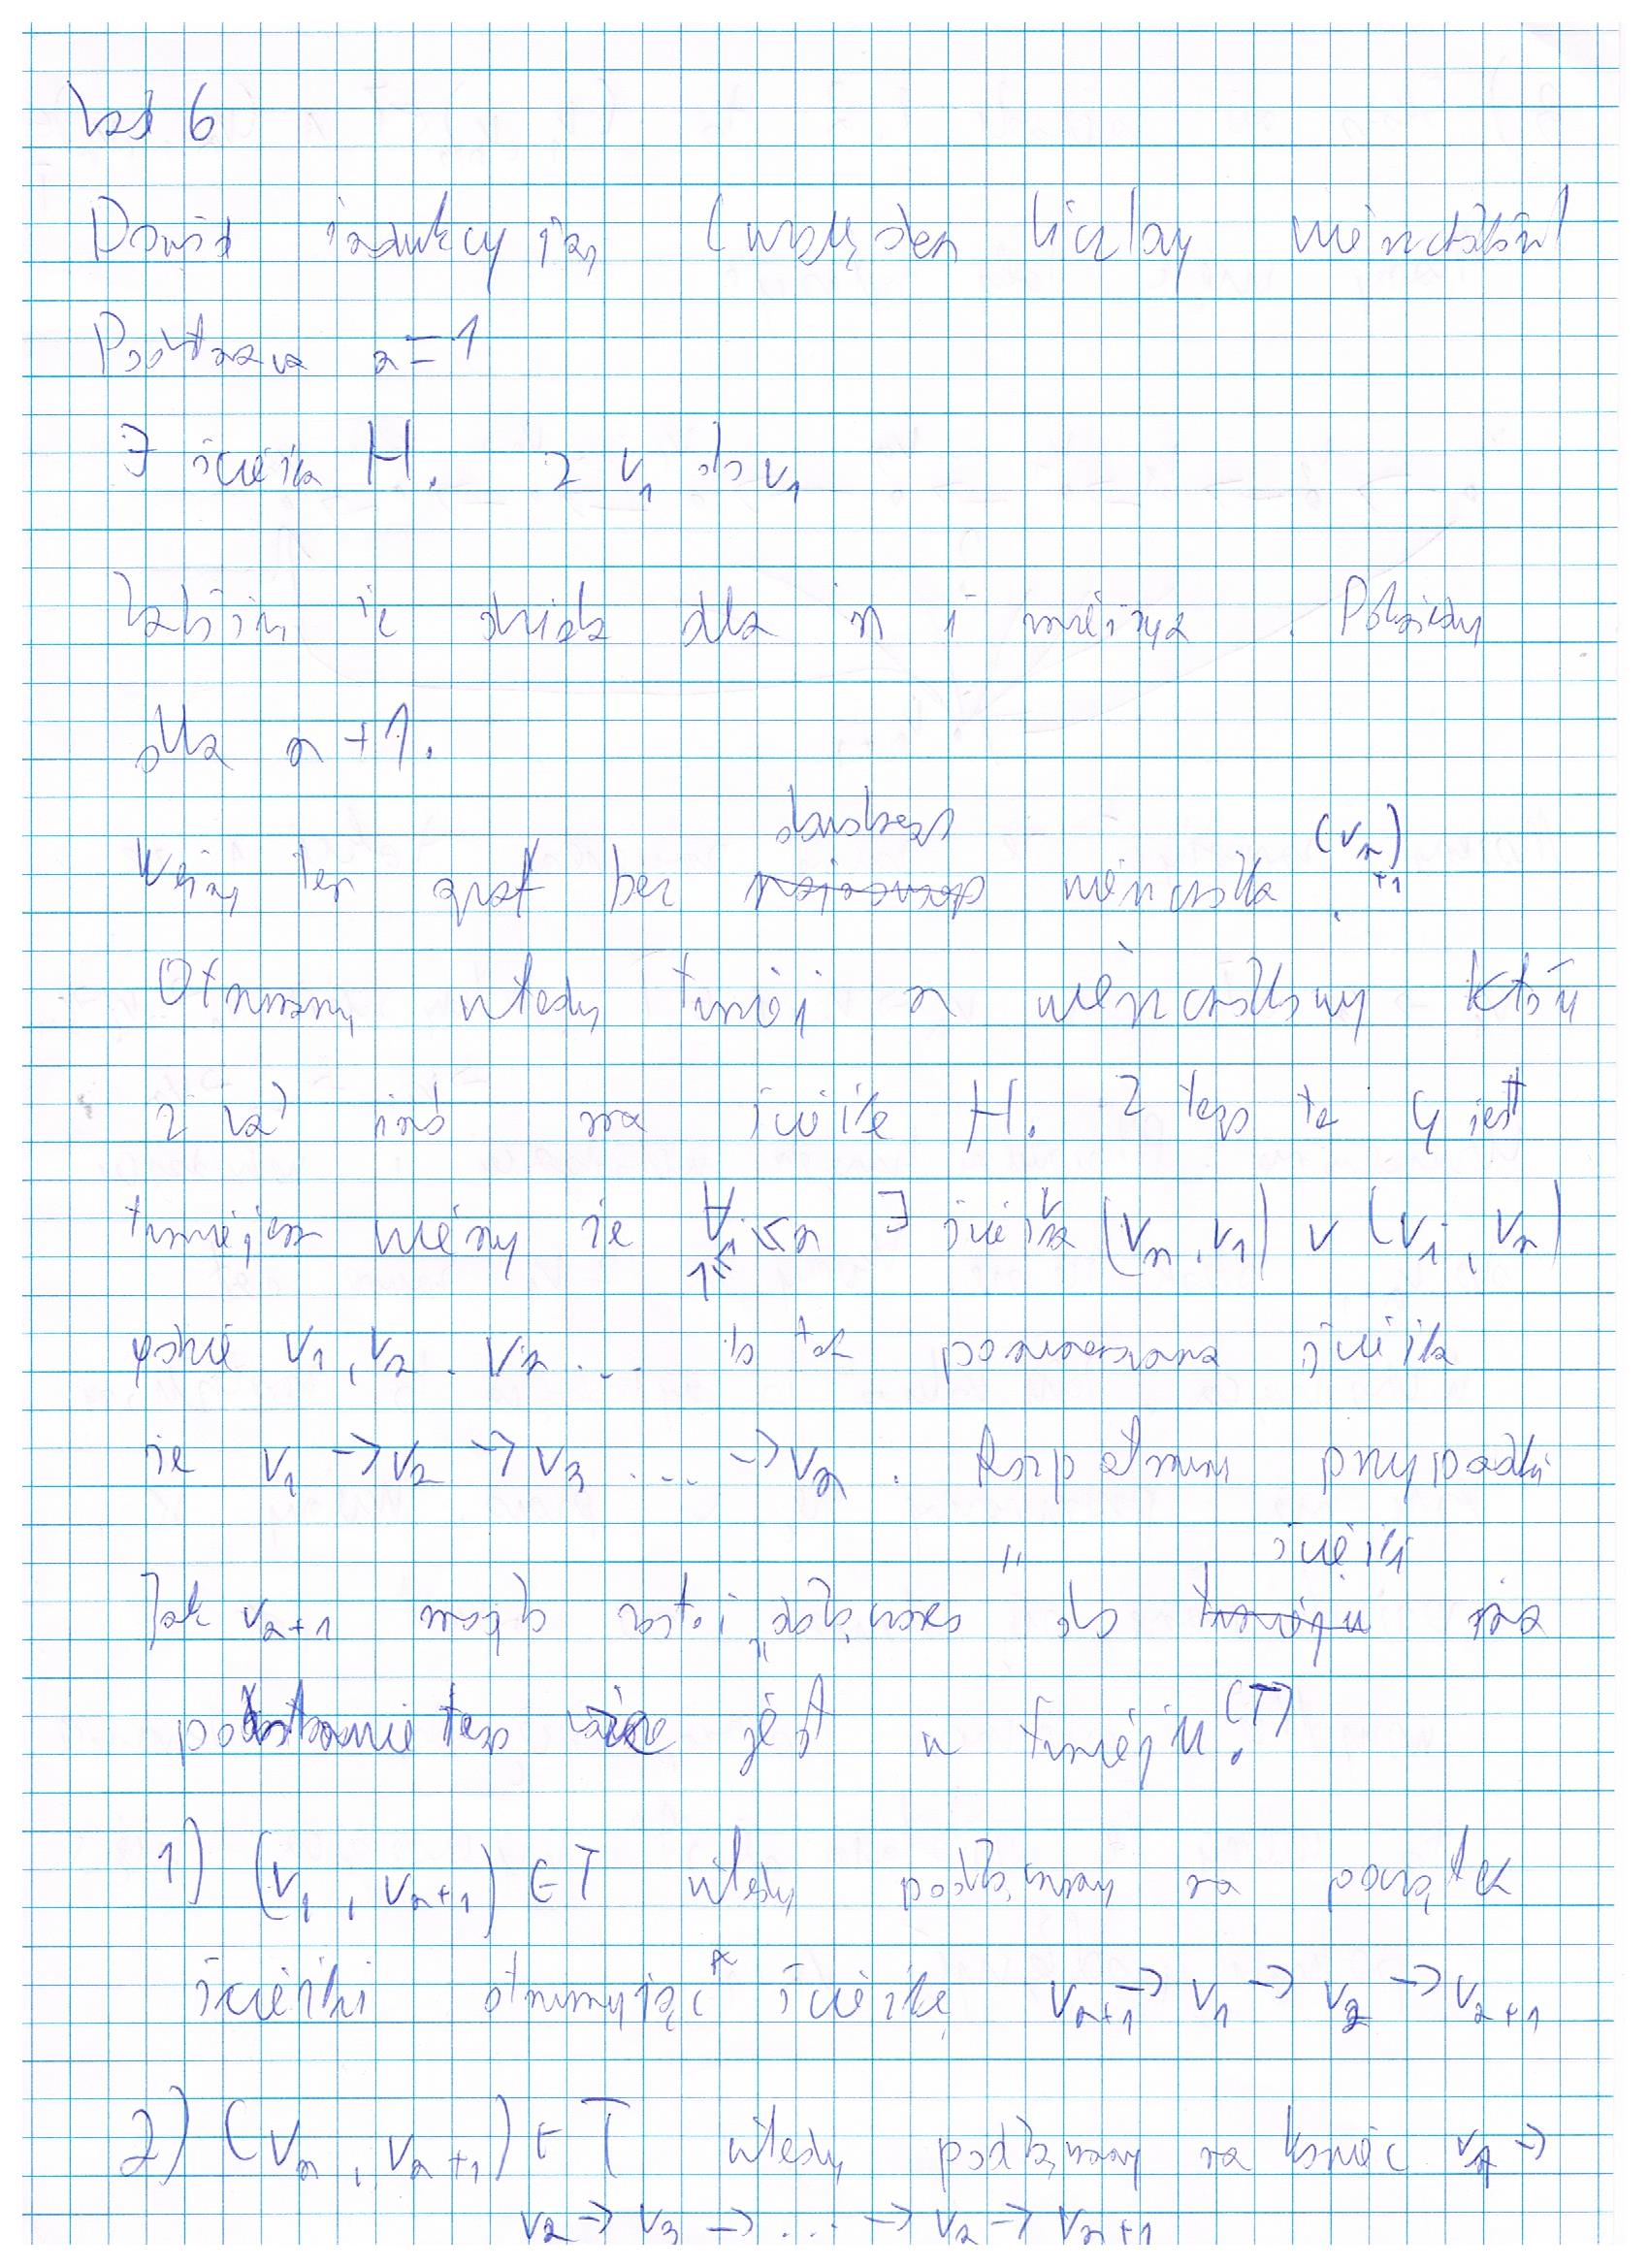 Zad 6
Dowód indukcyjny (względem liczby wierzchołków)
Podstawa n=1
∃ ścieżka H. z v₁ do v₁
Załóżmy że działa dla n i mniejszych. Pokażemy
dla n+1.
Weźmy ten graf bez dowolnego wierzchołka (vₙ₊₁).
Otrzymamy wtedy turniej n wierzchołkowy który
z zał ind ma ścieżkę H. Z tego że G jest
turniejem wiemy że ∀ 1≤i<n ∃ ścieżka (vₙ, v₁) ∨ (v₁, vₙ)
gdzie v₁, v₂, vₙ ... to ta ponumerowana ścieżka
że v₁ → v₂ → v₃ ... → vₙ. Rozpatrzmy przypadki
Jak vₙ₊₁ mógł zostać "dołączony" do ścieżki
jest w turnieju (T).
1) (v₁, vₙ₊₁) ∈ T wtedy podłączamy na początek
ścieżki otrzymując ścieżkę vₙ₊₁ → v₁ → v₂ → vₙ₊₁
2) (vₙ, vₙ₊₁) ∈ T wtedy podłączamy na koniec v₁ →
v₂ → v₃ → ... → vₙ → vₙ₊₁